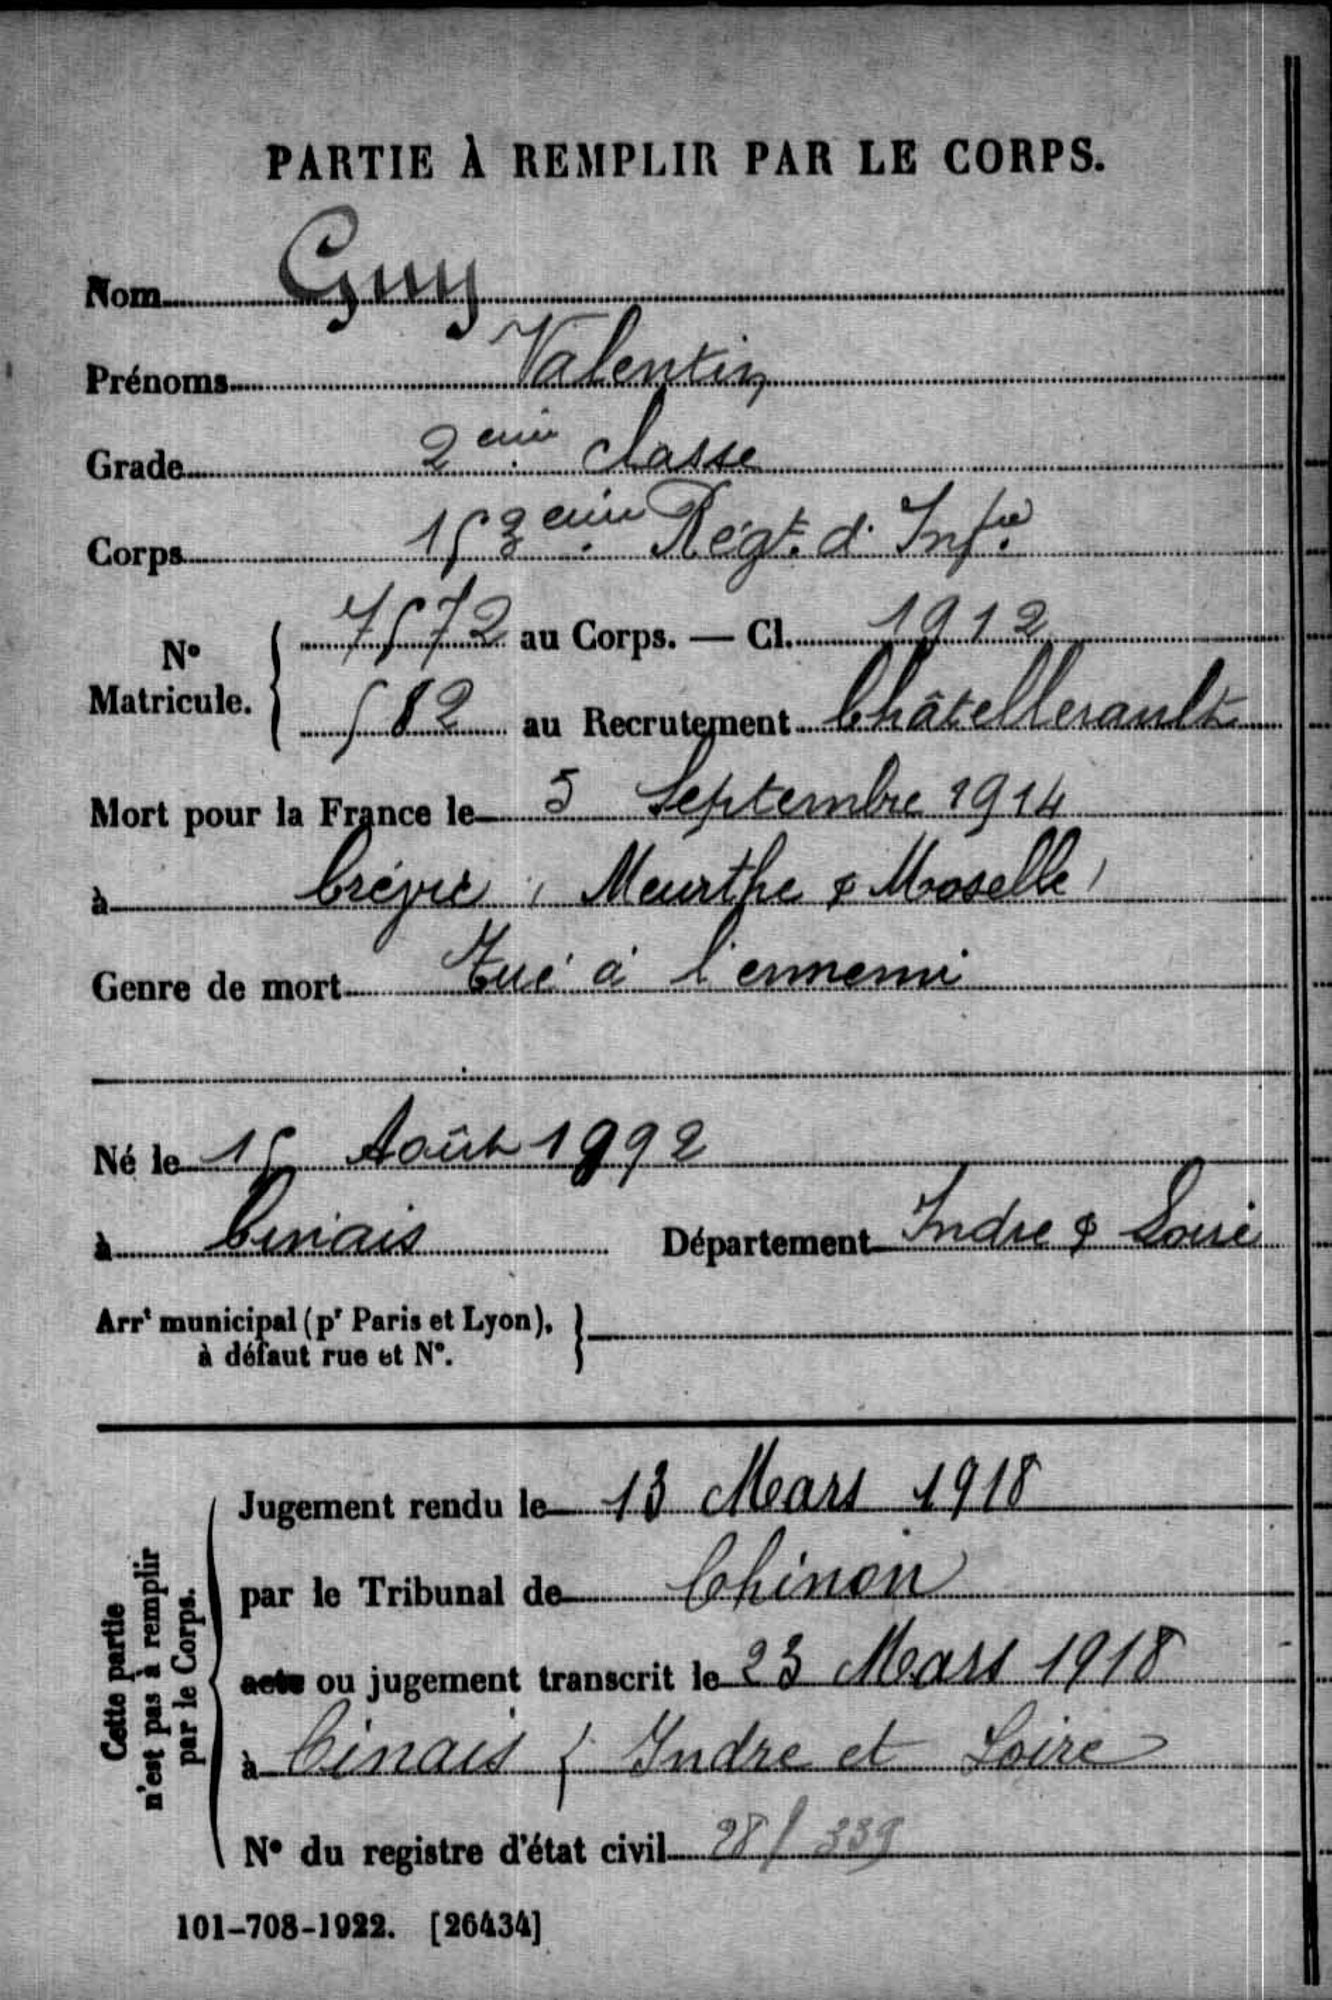 PARTIE À REMPLIR PAR LE CORPS.
Nom Guy
Prénoms Valentin
Grade 2eme classe
Corps 153eme Régt. d'Infie
N° Matricule. { 7572 au Corps. — Cl. 1912
582 au Recrutement Châtellerault
Mort pour la France le 5 Septembre 1914
à Crévic (Meurthe & Moselle)
Genre de mort Tué à l'ennemi
Né le 15 Août 1892
à Cinais Département Indre & Loire
Arrt municipal (pr Paris et Lyon), }
à défaut rue et N°.
Cette partie
n'est pas à remplir
par le Corps.
Jugement rendu le 13 Mars 1918
par le Tribunal de Chinon
acte ou jugement transcrit le 23 Mars 1918
à Cinais ( Indre et Loire
N° du registre d'état civil 28/339
101-708-1922. [26434]